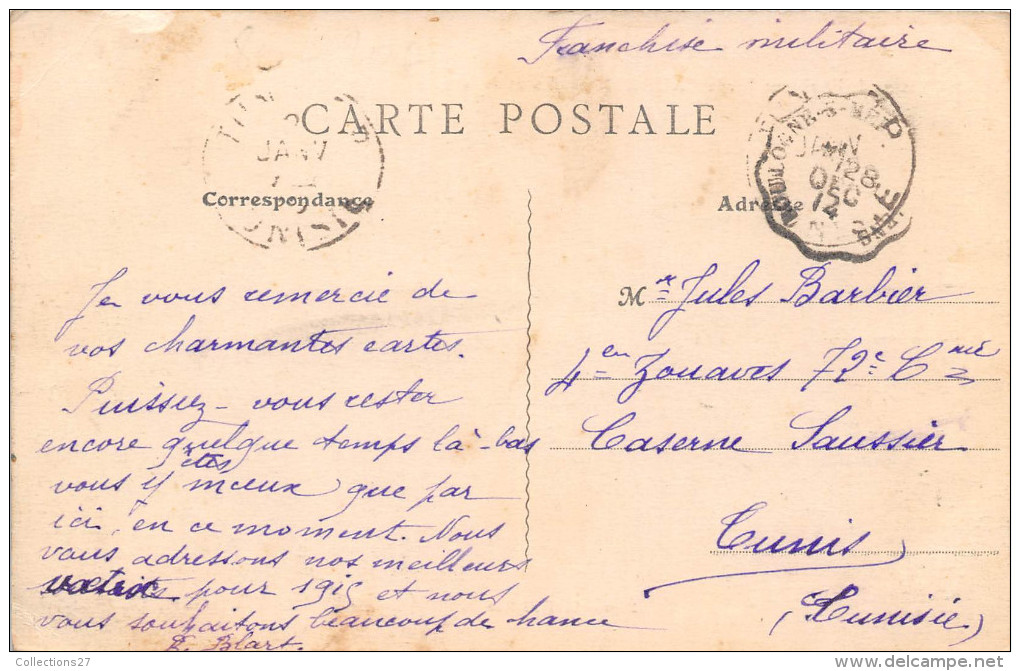 Franchise militaire
CARTE POSTALE
JANV
JANV
28
DEC
BOULOGNE-S-MER
Correspondance
Adresse
Je vous remercie de
vos charmantes cartes.
Puissiez-vous rester
encore quelque temps là-bas
vous y êtes mieux que par
ici, en ce moment. Nous
vous adressons nos meilleurs
pour 1915 et nous
vous souhaitons beaucoup de chance
Blart.
Mr Jules Barbier
4e Zouaves 72e Cnie
Caserne Saussier
Tunis
(Tunisie)
Collections27
delcampe.net